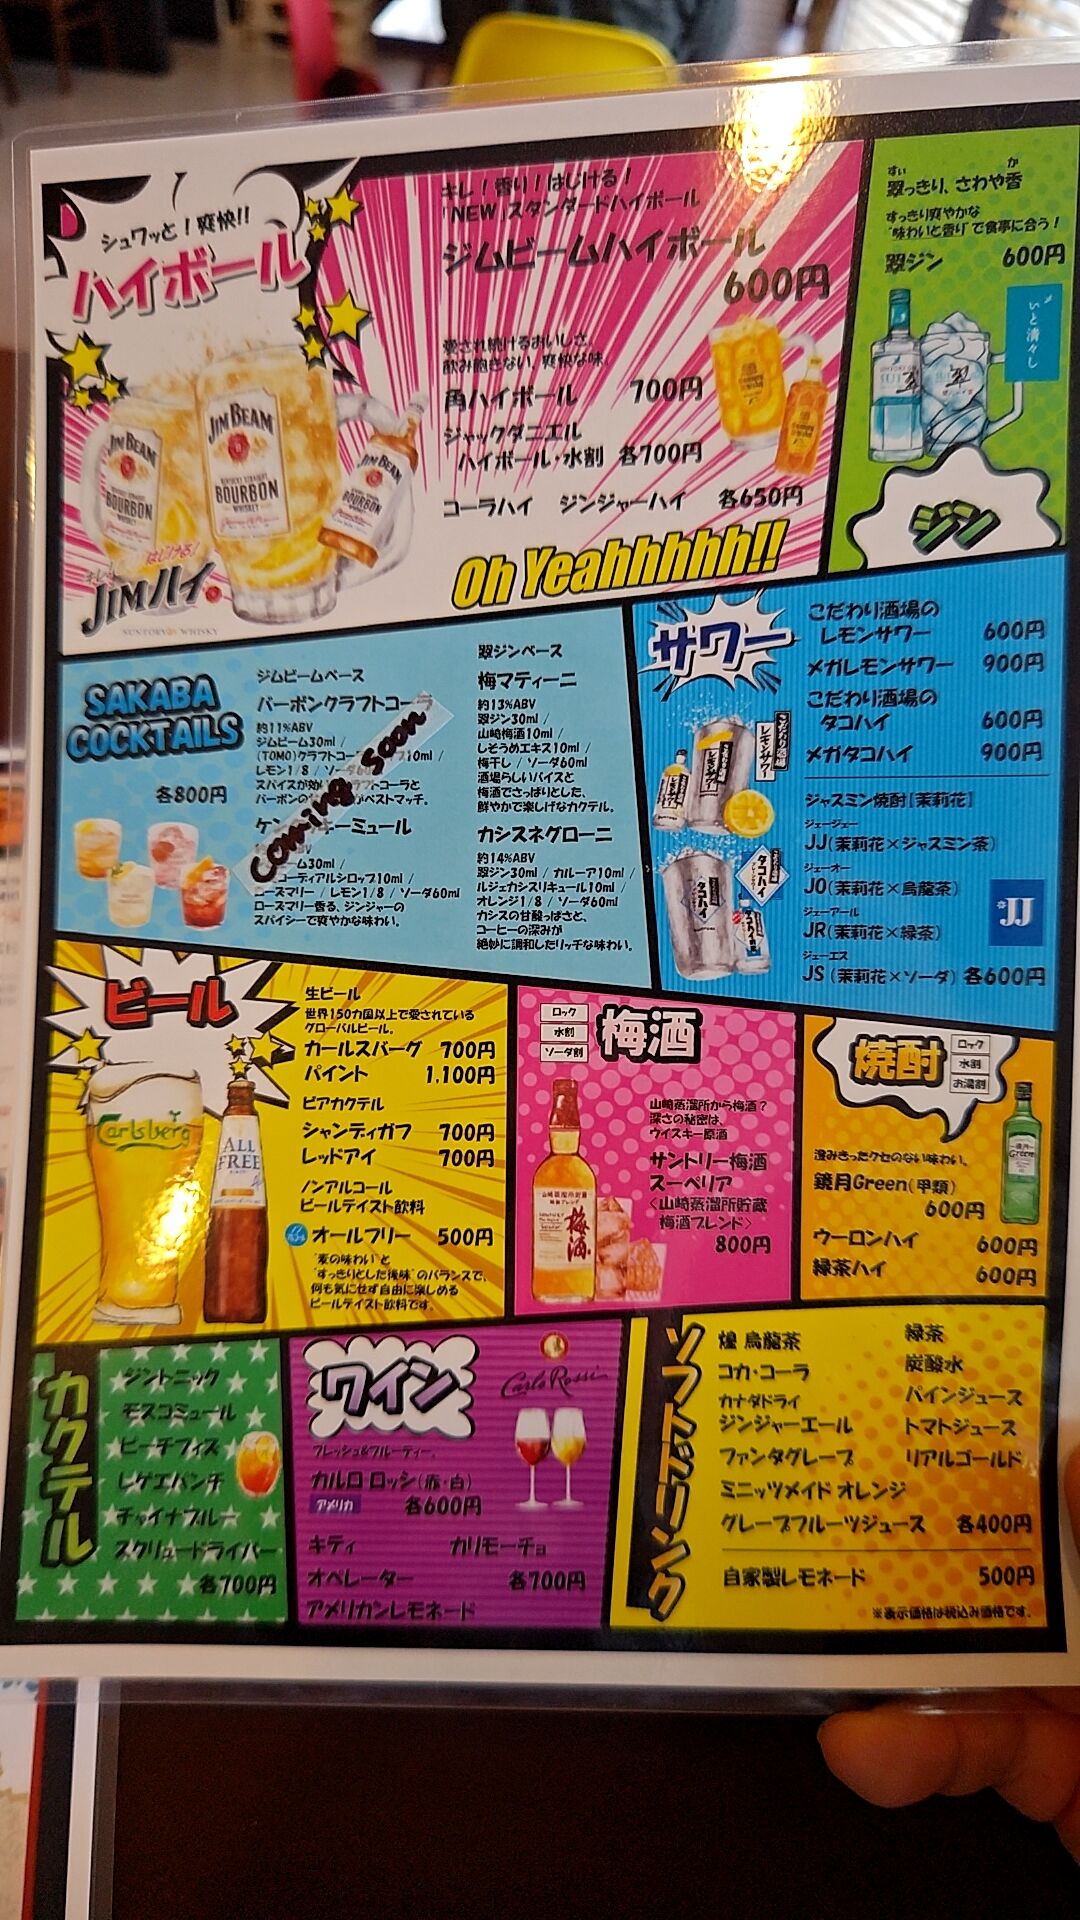 シュワッと!爽快!!
ハイボール
キレ!香り!はじける!
「NEW」スタンダードハイボール
ジムビームハイボール
600円
愛され続けるおいしさ。
飲み飽きない、爽快な味。
角ハイボール 700円
ジャックダニエル
ハイボール・水割 各700円
コーラハイ ジンジャーハイ 各650円
Oh Yeahhhhhh!!
JIM BEAM
BOURBON
JIM BEAM
KENTUCKY STRAIGHT
BOURBON
WHISKEY
JIM BEAM
BOURBON
はじける!
JIMハイ
SUNTORY WHISKY
すい か
翠っきり、さわや香
すっきり爽やかな
"味わいと香り"で食事に合う!
翠ジン 600円
いと清々し
翠
翠
ジン
SAKABA
COCKTAILS
各800円
ジムビームベース
バーボンクラフトコーラ
約11%ABV
ジムビーム30ml /
(TOMO)クラフトコー 10ml /
レモン1/8 / ソーダ60
スパイスが効い フトコーラと
バーボンの がベストマッチ。
ケン ーミュール
ーム30ml /
コーディアルシロップ10ml /
ローズマリー / レモン1/8 / ソーダ60ml
ローズマリー香る、ジンジャーの
スパイシーで爽やかな味わい。
Coming Soon
翠ジンベース
梅マティーニ
約13%ABV
翠ジン30ml /
山崎梅酒10ml /
しそうめエキス10ml /
梅干し / ソーダ60ml
酒場らしいバイスと
梅酒でさっぱりとした、
鮮やかで楽しげなカクテル。
カシスネグローニ
約14%ABV
翠ジン30ml / カルーア10ml /
ルジェカシスリキュール10ml /
オレンジ1/8 / ソーダ60ml
カシスの甘酸っぱさと、
コーヒーの深みが
絶妙に調和したリッチな味わい。
サワー
こだわり酒場の
レモンサワー 600円
メガレモンサワー 900円
こだわり酒場の
タコハイ 600円
メガタコハイ 900円
レモンサワー
タコハイ
タコハイ
ジャスミン焼酎【茉莉花】
ジェージェー
JJ(茉莉花×ジャスミン茶)
ジェーオー
JO(茉莉花×烏龍茶)
ジェーアール
JR(茉莉花×緑茶)
ジェーエス
JS(茉莉花×ソーダ) 各600円
JJ
ビール
生ビール
世界150カ国以上で愛されている
グローバルビール。
カールスバーグ 700円
パイント 1,100円
ビアカクテル
シャンディガフ 700円
レッドアイ 700円
ノンアルコール
ビールテイスト飲料
オールフリー 500円
"麦の味わい"と
"すっきりとした後味"のバランスで、
何も気にせず自由に楽しめる
ビールテイスト飲料です。
Carlsberg
ALL
FREE
ロック
水割
ソーダ割
梅酒
山崎蒸溜所から梅酒?
深さの秘密は、
ウイスキー原酒
サントリー梅酒
スーペリア
<山崎蒸溜所貯蔵
梅酒ブレンド>
800円
梅酒
焼酎
ロック
水割
お湯割
澄みきったクセのない味わい。
鏡月Green(甲類)
600円
ウーロンハイ 600円
緑茶ハイ 600円
Green
カクテル
ジントニック
モスコミュール
ピーチフィズ
レゲエパンチ
チャイナブルー
スクリュードライバー
各700円
ワイン
Carlo Rossi
フレッシュ&フルーティー。
カルロ ロッシ(赤・白)
アメリカ 各600円
キティ カリモーチョ
オペレーター 各700円
アメリカンレモネード
ソフトドリンク
煌 烏龍茶
コカ・コーラ
カナダドライ
ジンジャーエール
ファンタグレープ
ミニッツメイド オレンジ
グレープフルーツジュース 各400円
緑茶
炭酸水
パインジュース
トマトジュース
リアルゴールド
自家製レモネード 500円
※表示価格は税込み価格です。